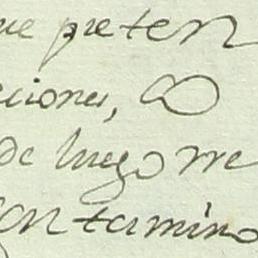 ue preten
ciones, 
de luego rre
con termino